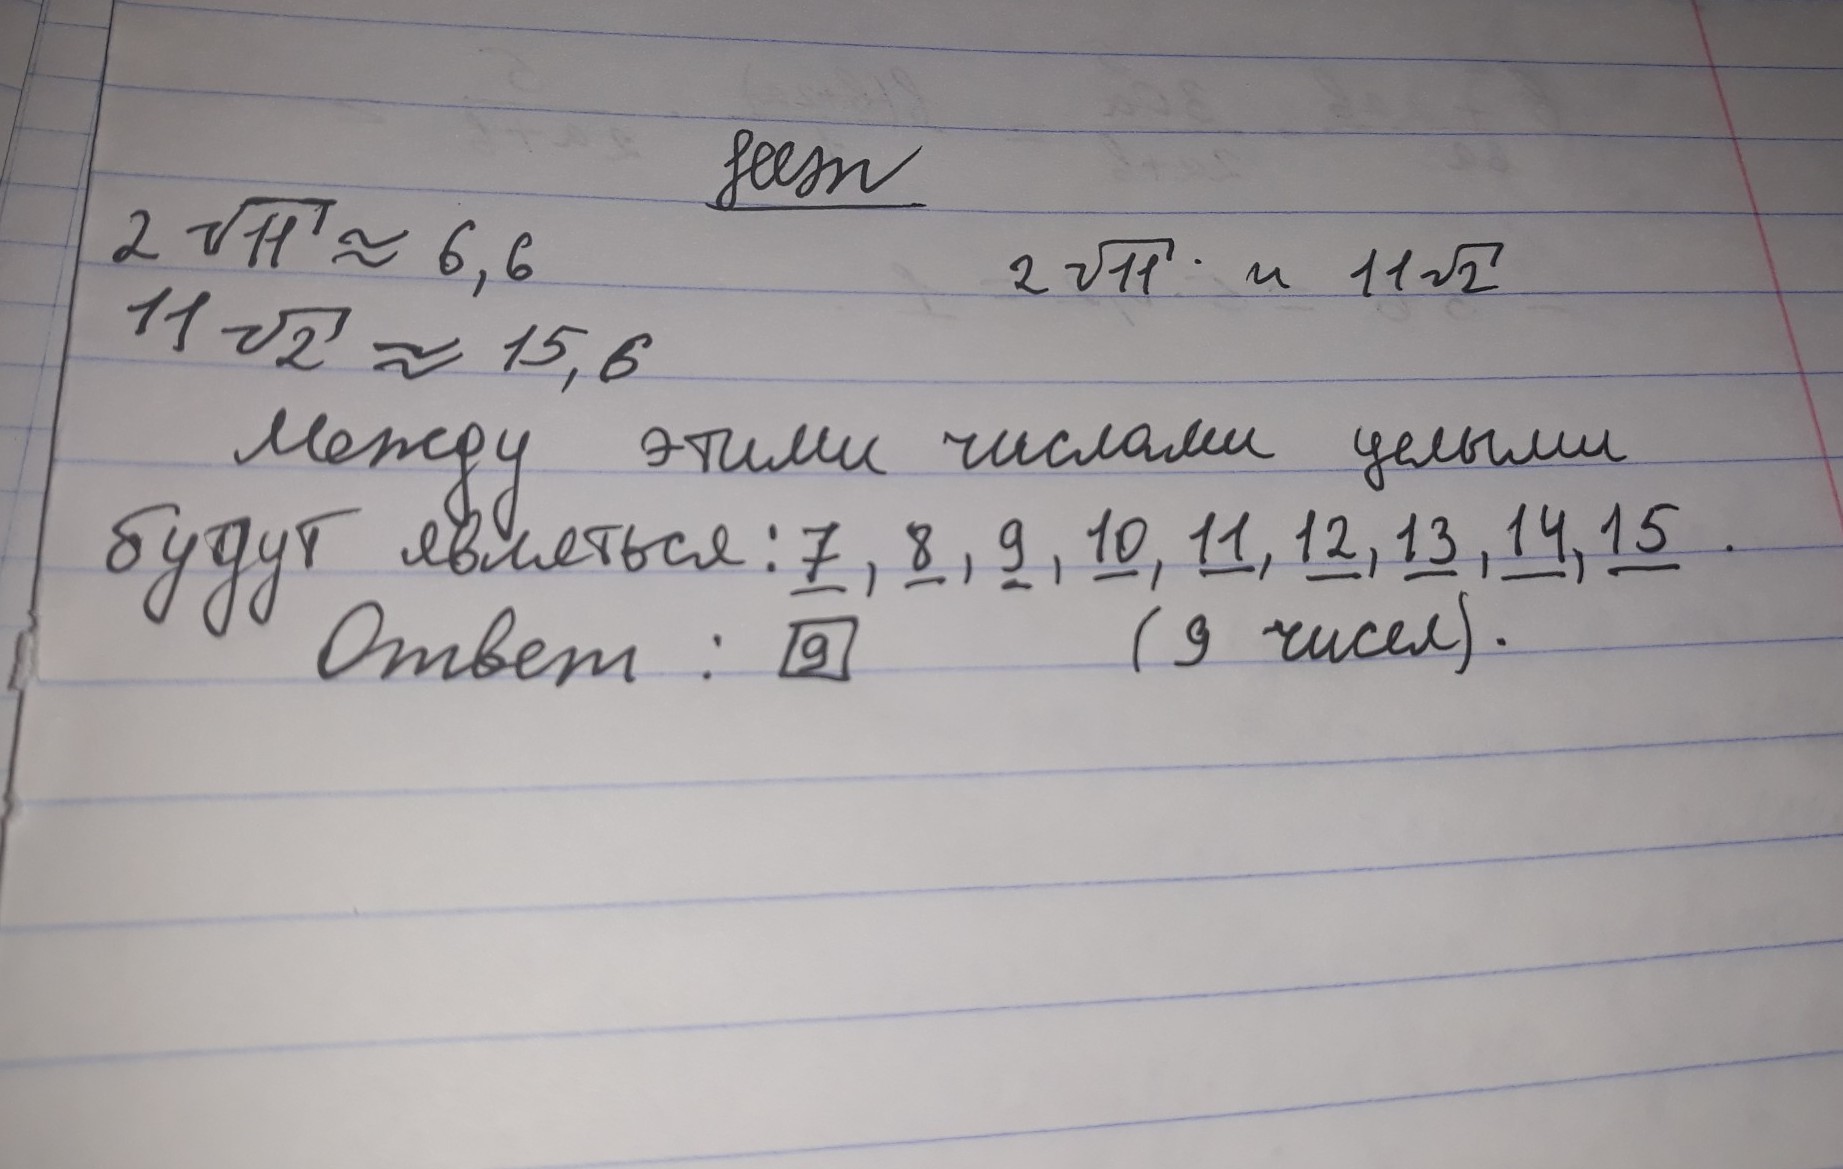 2√11 ≈ 6,6
2√11 и 11√2
11√2 ≈ 15,6
Между этими числами целыми
будут являться: 7, 8, 9, 10, 11, 12, 13, 14, 15.
Ответ : 9 (9 чисел).